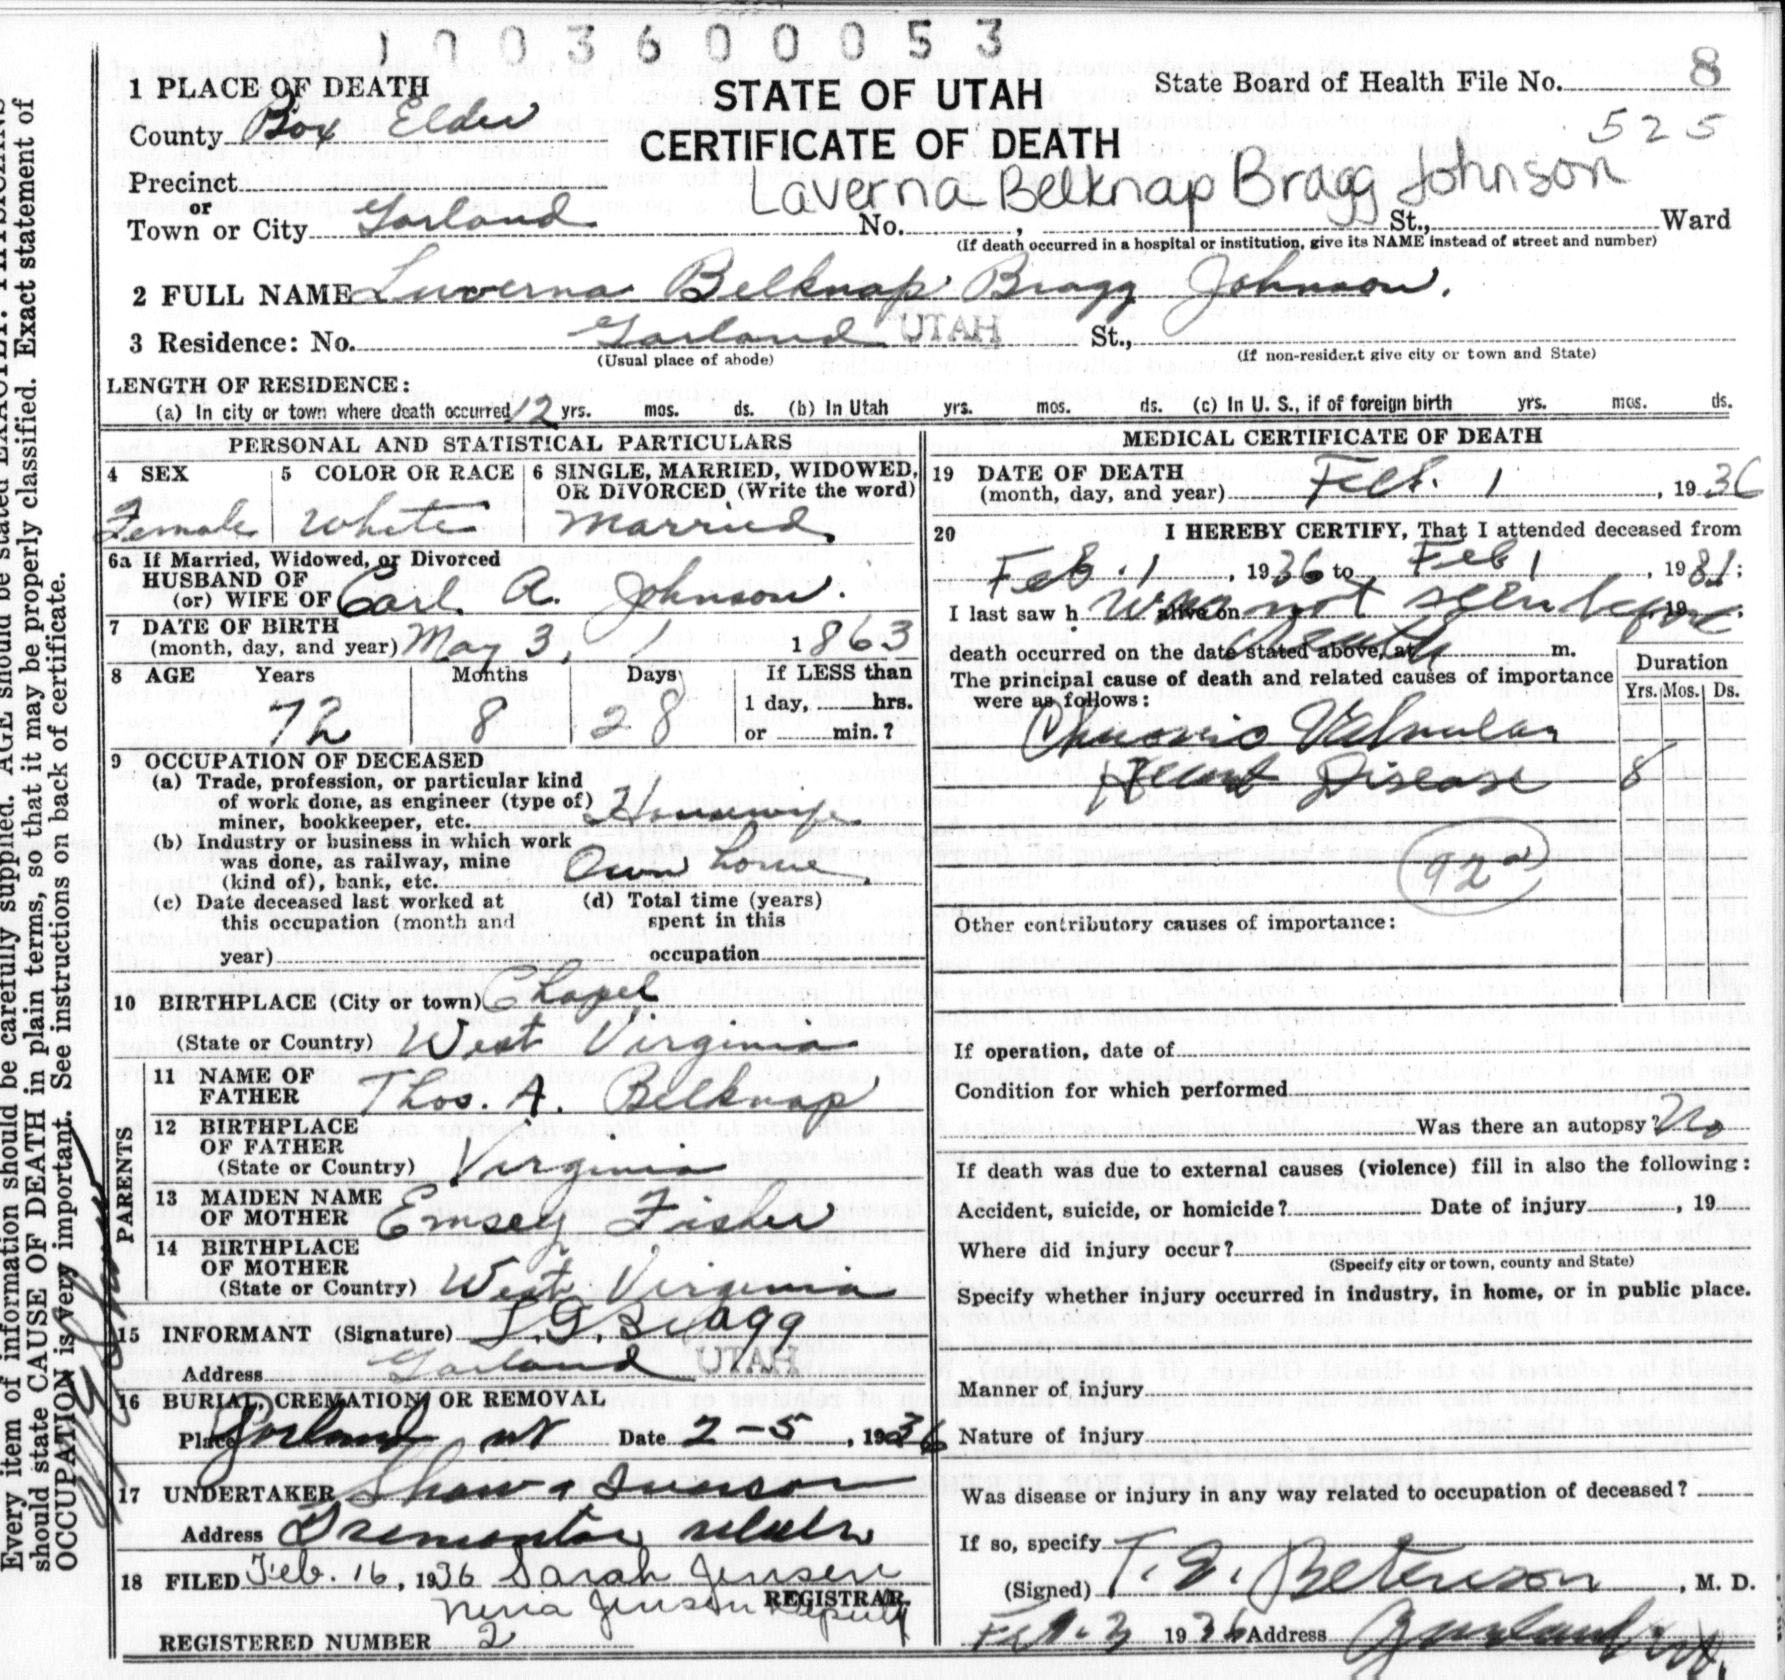 1003600053
1 PLACE OF DEATH
STATE OF UTAH
State Board of Health File No. 8
County Box Elder
CERTIFICATE OF DEATH
525
Precinct
Laverna Belknap Bragg Johnson
or
Town or City Garland No. , St., Ward
(If death occurred in a hospital or institution, give its NAME instead of street and number)
2 FULL NAME Luverna Belknap Bragg Johnson.
3 Residence: No. Garland UTAH St.,
(Usual place of abode) (If non-resident give city or town and State)
LENGTH OF RESIDENCE:
(a) In city or town where death occurred 12 yrs. mos. ds. (b) In Utah yrs. mos. ds. (c) In U. S., if of foreign birth yrs. mos. ds.
PERSONAL AND STATISTICAL PARTICULARS
4 SEX 5 COLOR OR RACE 6 SINGLE, MARRIED, WIDOWED,
OR DIVORCED (Write the word)
Female White Married
6a If Married, Widowed, or Divorced
HUSBAND OF
(or) WIFE OF Carl A. Johnson.
7 DATE OF BIRTH
(month, day, and year) May 3, 1863
8 AGE Years Months Days If LESS than
1 day, hrs.
72 8 28 or min.?
9 OCCUPATION OF DECEASED
(a) Trade, profession, or particular kind
of work done, as engineer (type of)
miner, bookkeeper, etc. Housewife
(b) Industry or business in which work
was done, as railway, mine
(kind of), bank, etc. Own home.
(c) Date deceased last worked at (d) Total time (years)
this occupation (month and spent in this
year) occupation
10 BIRTHPLACE (City or town) Chapel
(State or Country) West Virginia
PARENTS
11 NAME OF
FATHER Thos. A. Belknap
12 BIRTHPLACE
OF FATHER
(State or Country) Virginia
13 MAIDEN NAME
OF MOTHER Emsey Fisher
14 BIRTHPLACE
OF MOTHER
(State or Country) West Virginia
15 INFORMANT (Signature) L.G. Bragg
Address Garland UTAH
16 BURIAL, CREMATION, OR REMOVAL
Place Garland Ut Date 2-5, 1936
17 UNDERTAKER Shaw & Iverson
Address Tremonton Utah
18 FILED Feb. 16, 1936 Sarah Jensen
REGISTRAR.
Nena Jensen Deputy
REGISTERED NUMBER 2
MEDICAL CERTIFICATE OF DEATH
19 DATE OF DEATH
(month, day, and year) Feb. 1, 1936
20 I HEREBY CERTIFY, That I attended deceased from
Feb. 1, 1936 to Feb 1, 19
I last saw h alive on , 19 ;
Was not seen before
death
death occurred on the date stated above, at m.
The principal cause of death and related causes of importance
were as follows:
Duration
Yrs. Mos. Ds.
Chronic Valvular
Heart Disease 8
92
Other contributory causes of importance:
If operation, date of
Condition for which performed
Was there an autopsy? No
If death was due to external causes (violence) fill in also the following:
Accident, suicide, or homicide? Date of injury , 19
Where did injury occur?
(Specify city or town, county and State)
Specify whether injury occurred in industry, in home, or in public place.
Manner of injury
Nature of injury
Was disease or injury in any way related to occupation of deceased?
If so, specify
(Signed) Peterson, M. D.
Feb. 3 1936 Address Garland Ut.
should state CAUSE OF DEATH in plain terms, so that it may be properly classified. Exact statement of
OCCUPATION is very important. See instructions on back of certificate.